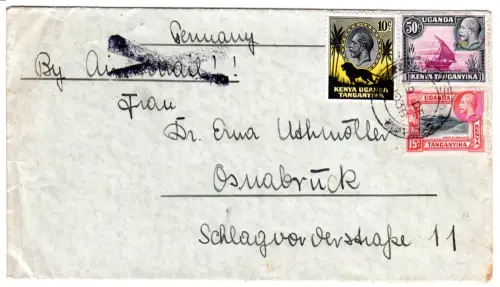 Germany
By Air Mail!!
Frau
Dr. Erna Uthmöller
Osnabrück
Schlagvorderstraße 11
10c
KENYA UGANDA
TANGANYIKA
50c
UGANDA
KENYA TANGANYIKA
UGANDA
15c
KENYA
TANGANYIKA